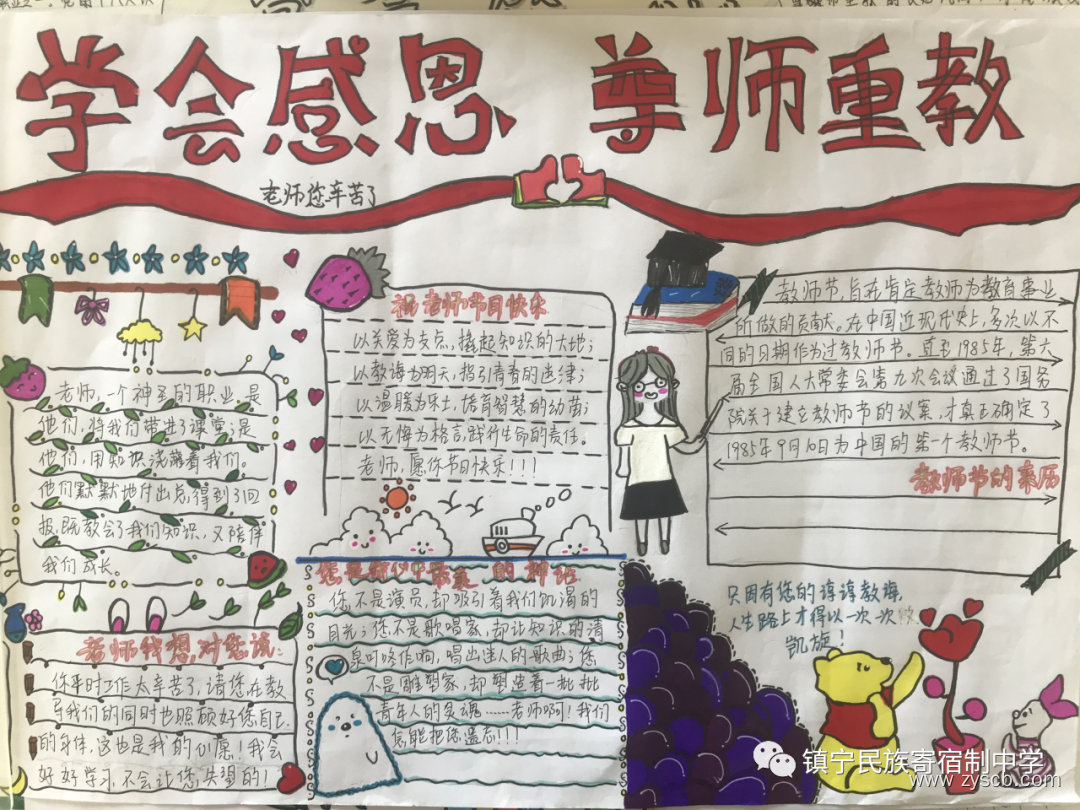 学会感恩 尊师重教
老师您辛苦了
老师，一个神圣的职业。是
他们，将我们带进了课堂；是
他们，用知识浇灌着我们。
他们默默地付出总得到了回
报，既教会了我们知识，又陪伴
我们成长。
祝老师节日快乐
以关爱为支点，撬起知识的大地；
以教诲为明天，指引青春的旋律；
以温暖为乐土，培育智慧的幼苗；
以无悔为格言，践行生命的责任。
老师，愿你节日快乐！！！
教师节，旨在肯定教师为教育事业
所做的贡献。在中国近现代史上，多次以不
同的日期作为过教师节。直至1985年，第六
届全国人大常委会第九次会议通过了国务
院关于建立教师节的议案，才真正确定了
1985年9月10日为中国的第一个教师节。
教师节的来历
老师我想，对您说：
你平时工作太辛苦了，请您在教
导我们的同时也照顾好您自己
的身体，这也是我的心愿！我会
好好学习，不会让您失望的！
您是我心中最美的神话
您不是演员，却吸引着我们饥渴的
目光；您不是歌唱家，却让知识的清
泉叮咚作响，唱出迷人的歌曲；您
不是雕塑家，却塑造着一批批
青年人的灵魂……老师啊！我们
怎能把您遗忘！！！
只因有您的谆谆教诲，
人生路上才得以一次一次
凯旋！
镇宁民族寄宿制中学
www.zyscb.com